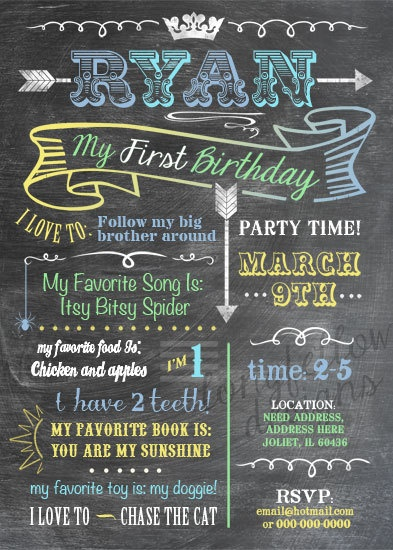 RYAN
My First Birthday
I LOVE TO-
Follow my big
brother around
My Favorite Song Is:
Itsy Bitsy Spider
my favorite food Is:
Chicken and apples
I'M 1
I have 2 teeth!
MY FAVORITE BOOK IS:
YOU ARE MY SUNSHINE
my favorite toy is: my doggie!
I LOVE TO — CHASE THE CAT
PARTY TIME!
MARCH
9TH!
time: 2-5
LOCATION:
NEED ADDRESS,
ADDRESS HERE
JOLIET, IL 60436
RSVP:
email@hotmail.com
or 000-000-0000